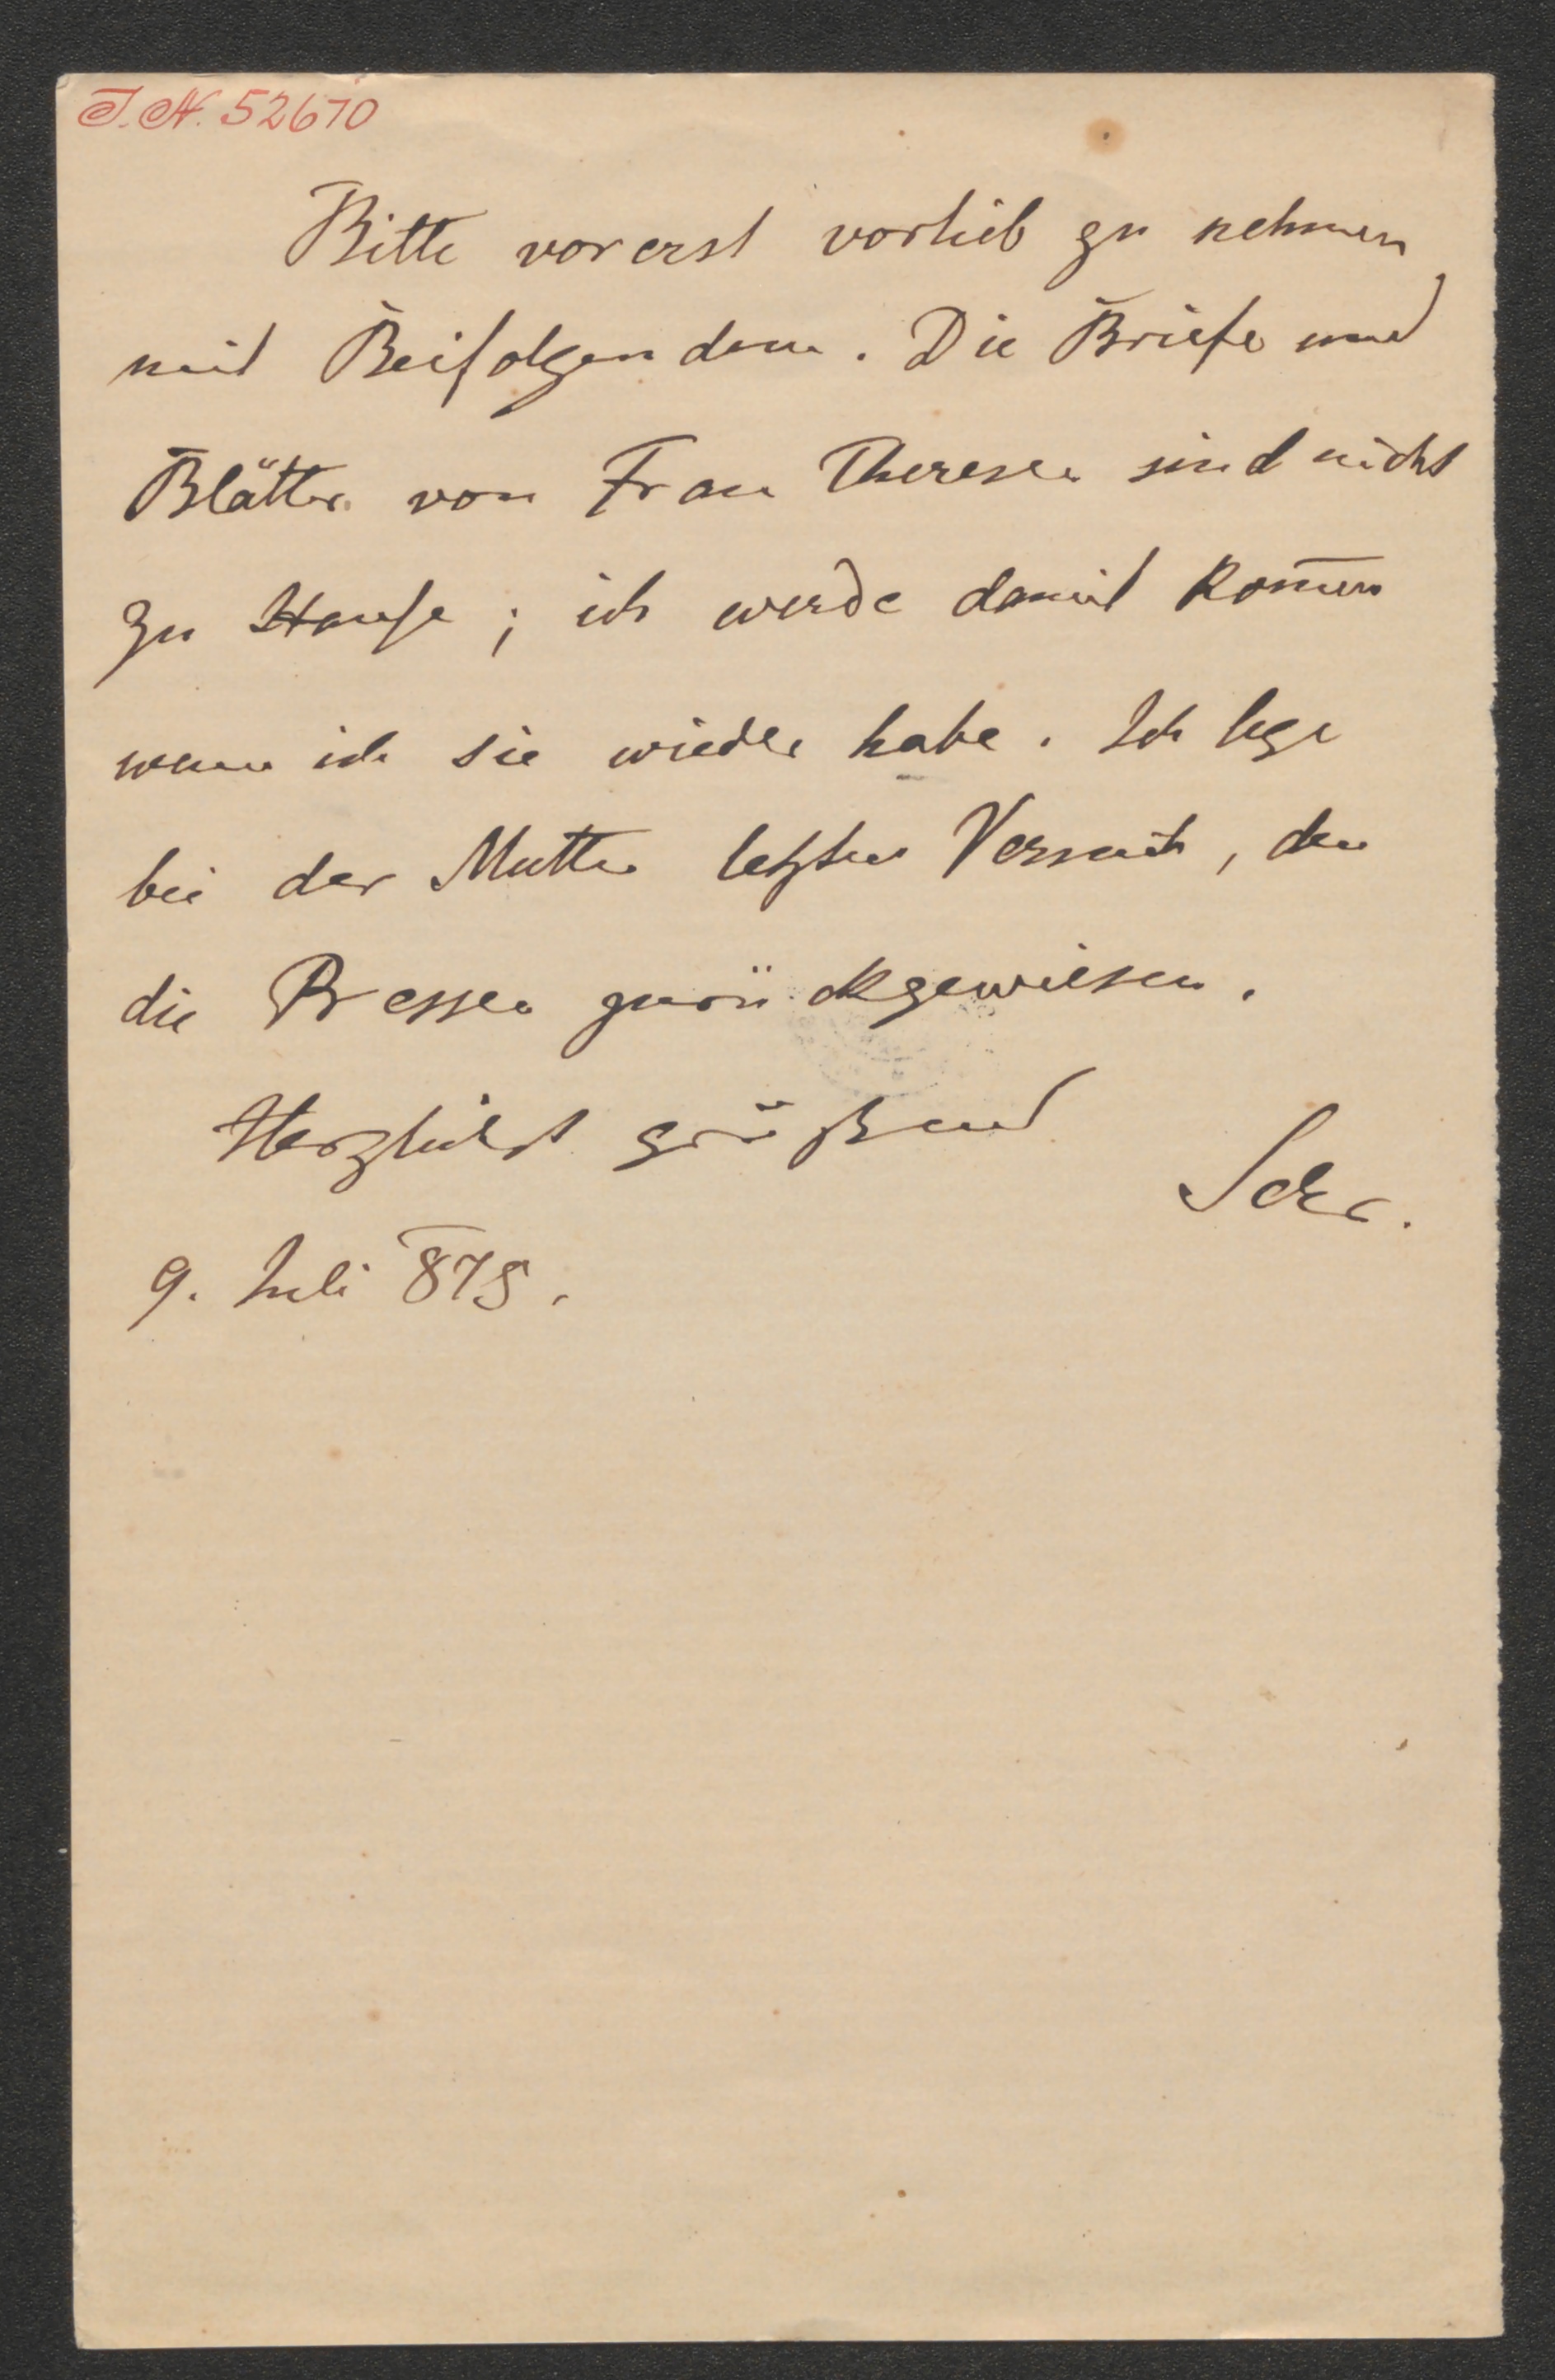 J. N. 52670
Bitte vorerst vorlieb zu nehmen
mit Beifolgendem. Die Briefe und
Blätter von Frau Therese sind nicht
zu Hause; ich werde damit kom̅en
wenn ich sie wieder habe. Ich lege
bei der Mutter letzten Versuch, den
die Presse zurückgewiesen.
Herzlichst grüßend
Schr.
9. Juli 878.